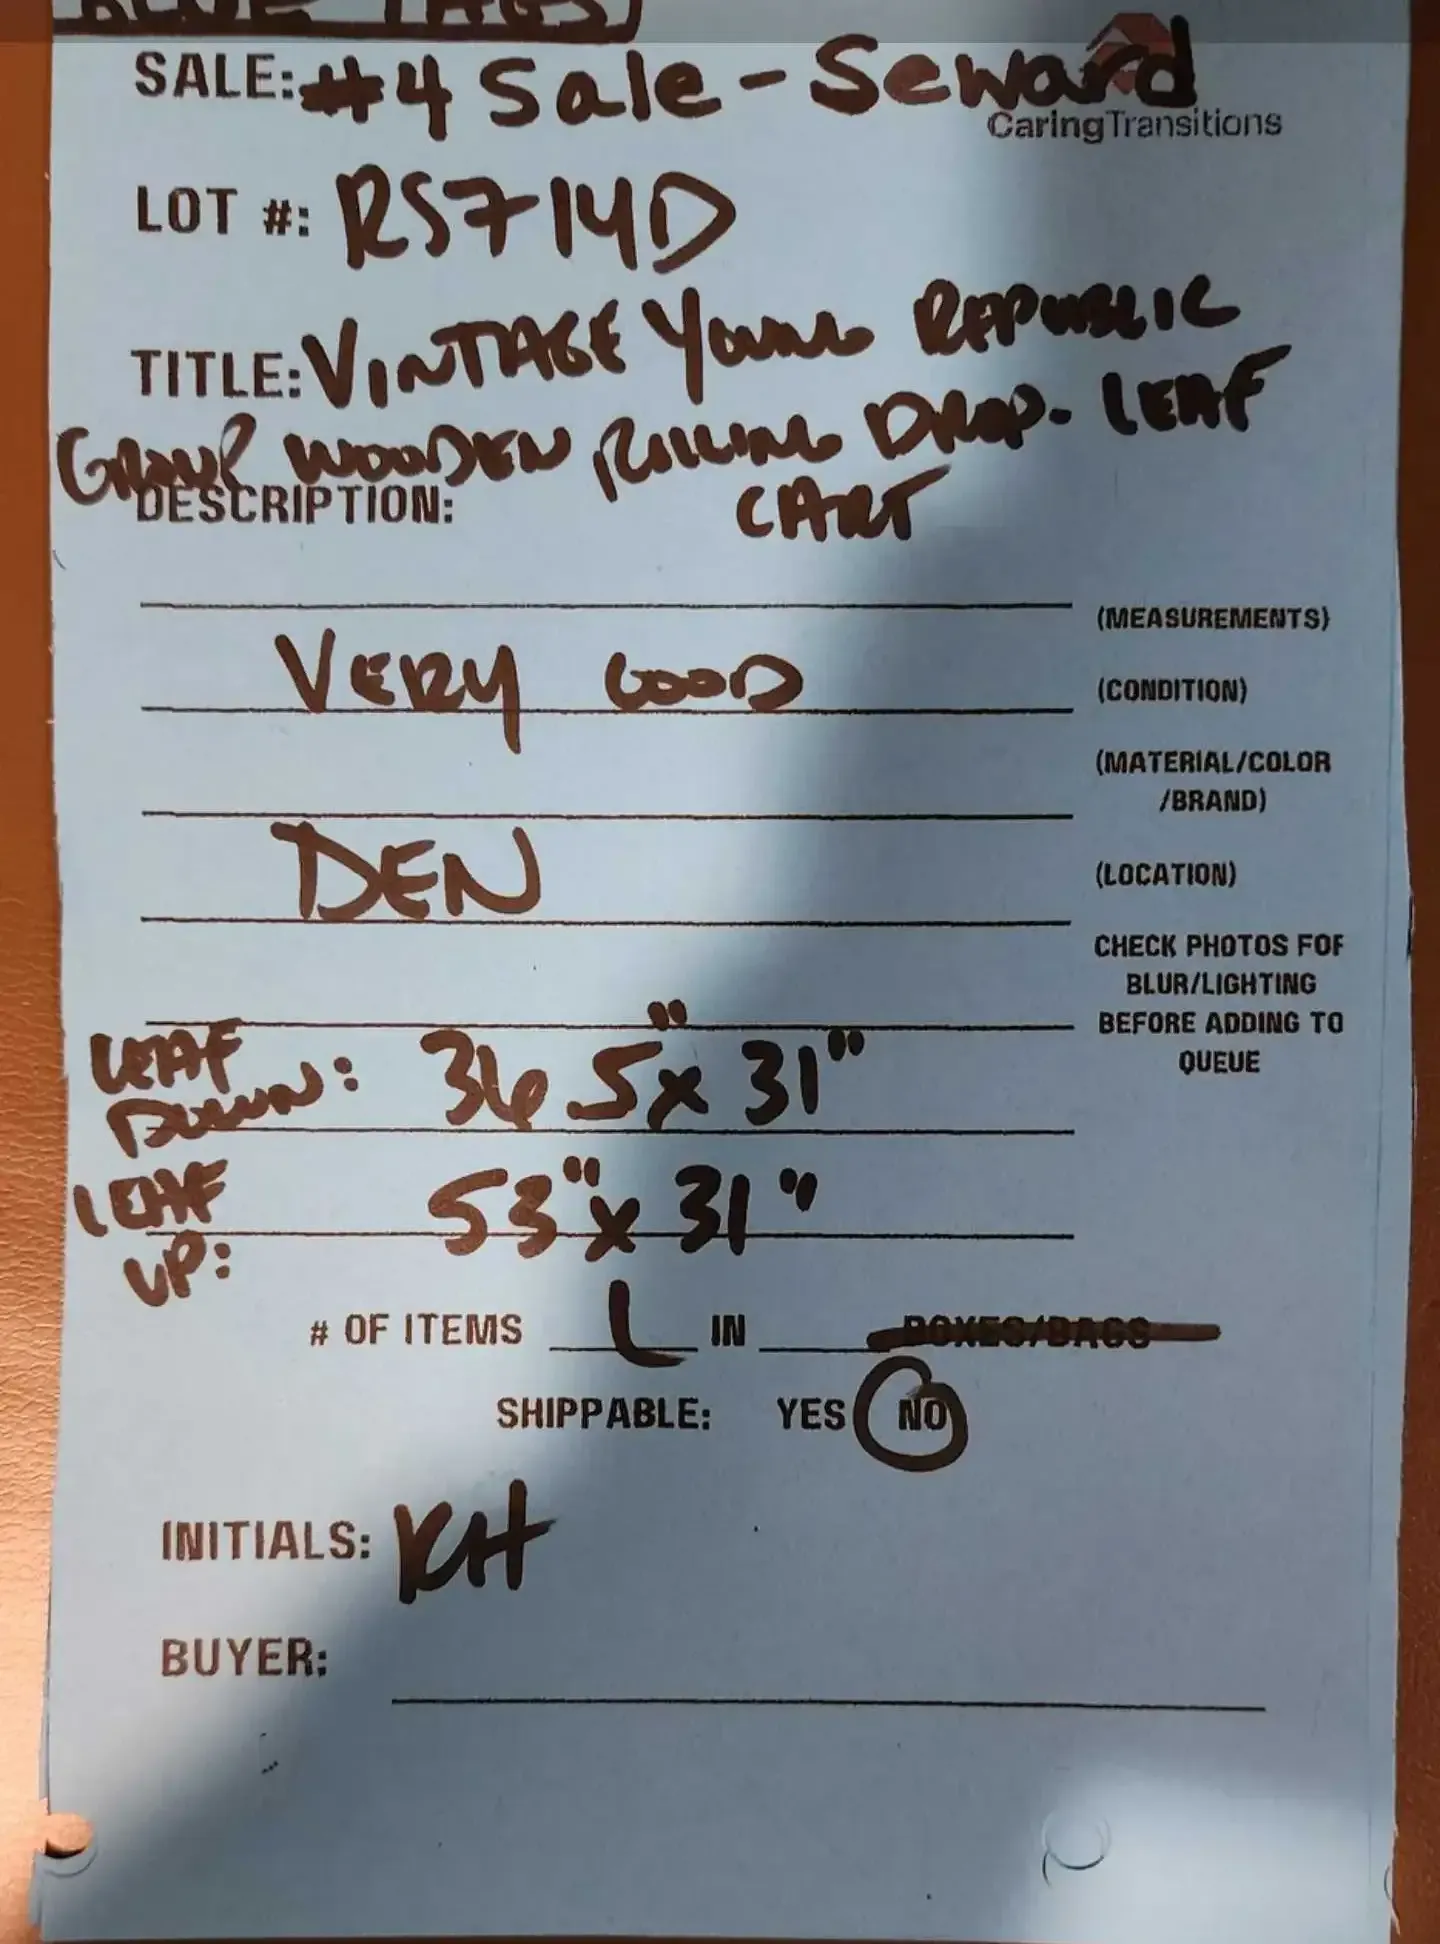 BLUE TAGS
SALE: #4 Sale - Seward
CaringTransitions
LOT #: RS714D
TITLE: VINTAGE YOUNG REPUBLIC
GROUP WOODEN ROLLING DROP-LEAF
CART
DESCRIPTION:
(MEASUREMENTS)
VERY GOOD (CONDITION)
(MATERIAL/COLOR
/BRAND)
DEN (LOCATION)
CHECK PHOTOS FOR
BLUR/LIGHTING
BEFORE ADDING TO
QUEUE
LEAF
DOWN: 36 5" x 31"
LEAF
UP: 53" x 31"
# OF ITEMS 1 IN BOXES/BAGS
SHIPPABLE: YES NO
INITIALS: KH
BUYER: